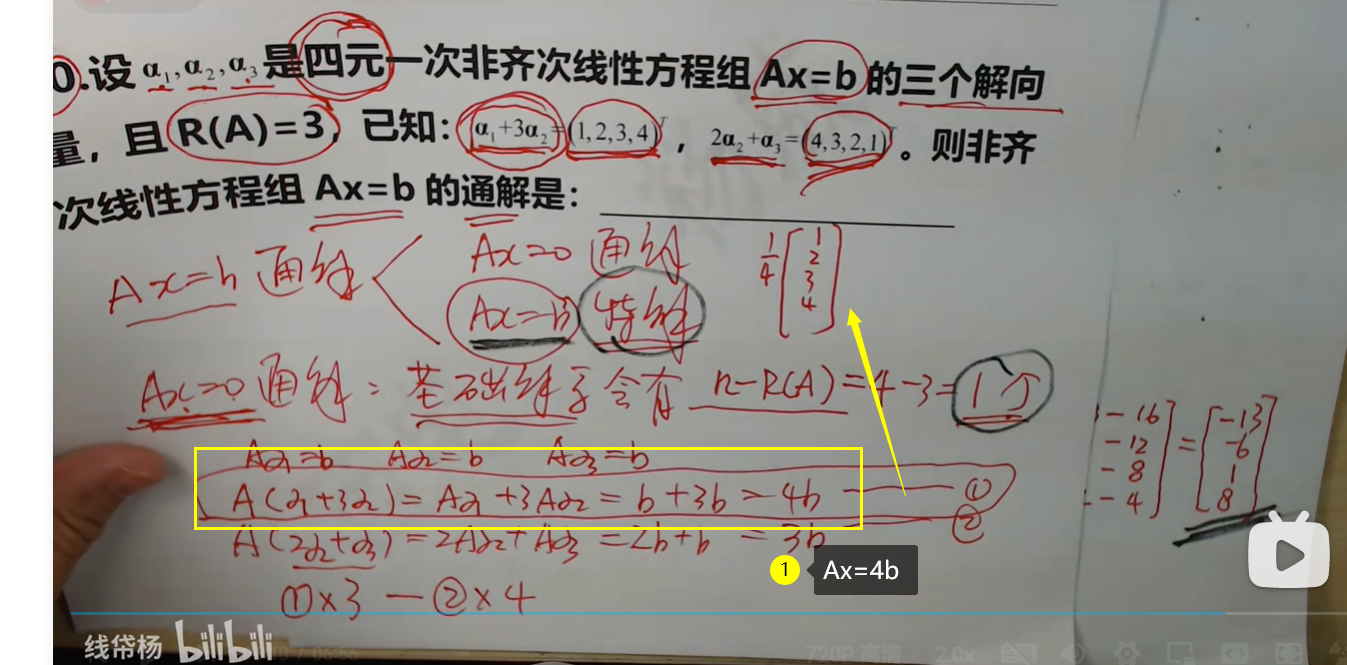 0.设 α₁,α₂,α₃是四元一次非齐次线性方程组 Ax=b 的三个解向
量，且 R(A)=3，已知：α₁+3α₂=(1,2,3,4)ᵀ，2α₂+α₃=(4,3,2,1)ᵀ。则非齐
次线性方程组 Ax=b 的通解是：
Ax=b 通解
Ax=0 通解
Ax=b 特解
1/4 [1 2 3 4]
Ax=0 通解：基础解系含有 n-R(A)=4-3=1个
Aα₁=b Aα₂=b Aα₃=b
A(α₁+3α₂)=Aα₁+3Aα₂=b+3b=4b ①
A(2α₂+α₃)=2Aα₂+Aα₃=2b+b=3b ②
①×3-②×4
-16
-12
-8
-4
= [-13 -6 1 8]
1 Ax=4b
线帒杨 bilibili
/ 06:56
720P 高清 2.0x